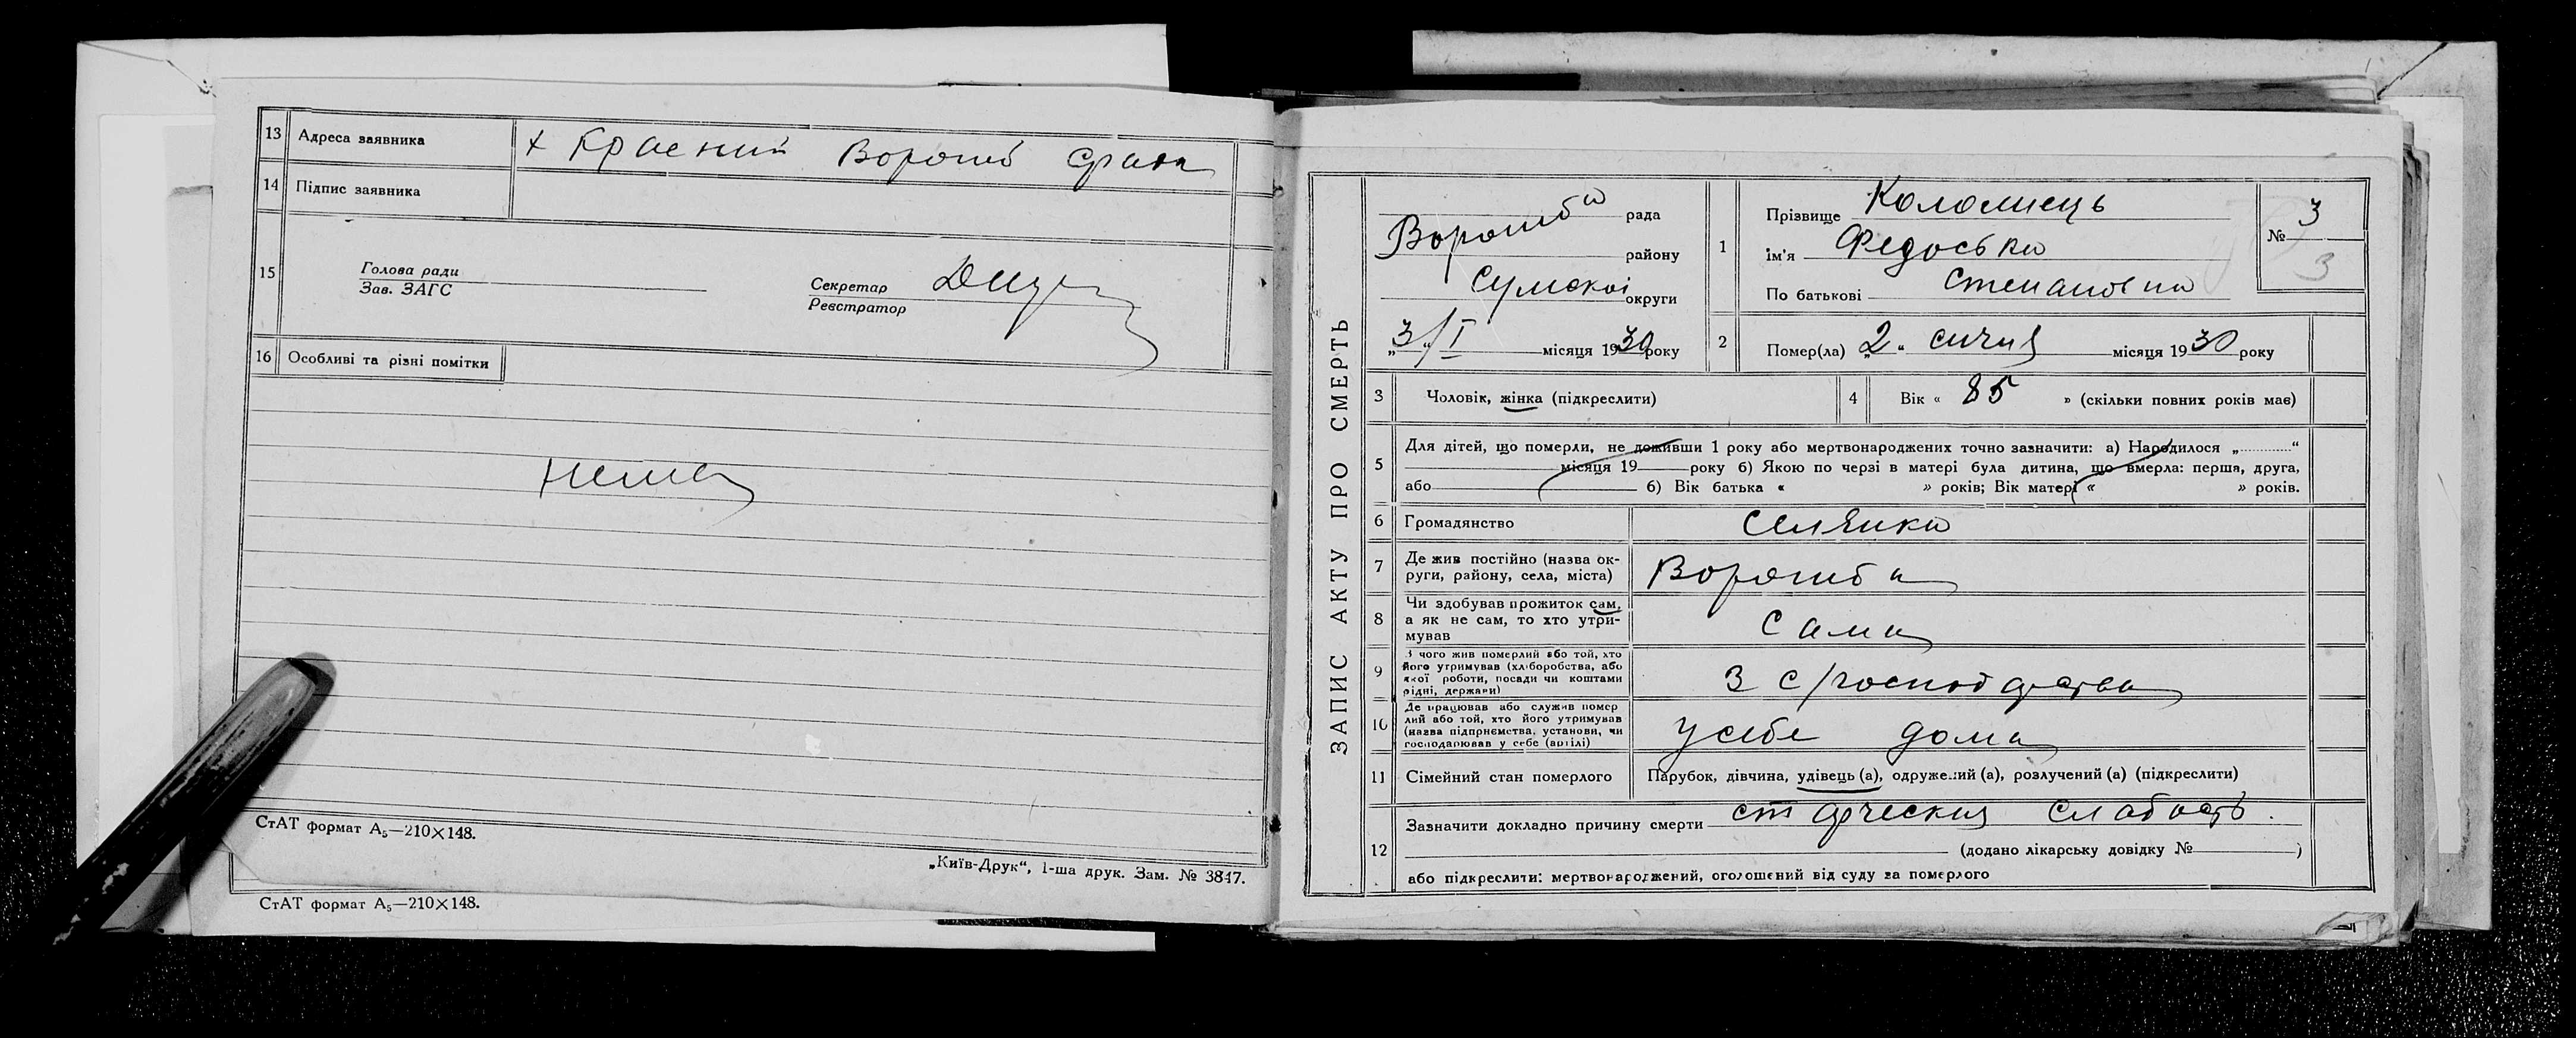 13 Адреса заявника х Красний Ворожб Срада
14 Підпис заявника
15 Голова ради
Зав. ЗАГС
Секретар
Реєстратор
16 Особливі та різні помітки
нема
СтАТ формат А₅—210×148.
„Київ-Друк“, 1-ша друк. Зам. № 3847.
СтАТ формат А₅—210×148.
ЗАПИС АКТУ ПРО СМЕРТЬ
Ворожба рада
району
Сумскої округи
„3“/I місяця 1930 року
1 Прізвище Коломиець
Ім'я Федоська
По батькові Степановна
№ 3
3
2 Помер(ла) „2“ січня місяця 1930 року
3 Чоловік, жінка (підкреслити)
4 Вік « 85 » (скільки повних років має)
5 Для дітей, що померли, не доживши 1 року або мертвонароджених точно зазначити: а) Народилося „ “
місяця 19 року б) Якою по черзі в матері була дитина, що вмерла: перша, друга,
або б) Вік батька « » років; Вік матері « » років.
6 Громадянство Селянка
7 Де жив постійно (назва ок-
руги, району, села, міста) Ворожба
8 Чи здобував прожиток сам,
а як не сам, то хто утри-
мував Сама
9 З чого жив померлий або той, хто
його утримував (хліборобства, або
якої роботи, посади чи коштами
рідні, держави) З с/господарства
10 Де працював або служив помер
лий або той, хто його утримував
(назва підприємства, установи, чи
господарював у себе (артілі) У себе дома
11 Сімейний стан померлого Парубок, дівчина, удівець (а), одружений (а), розлучений (а) (підкреслити)
12 Зазначити докладно причину смерти старческия слабость.
(додано лікарську довідку № )
або підкреслити: мертвонароджений, оголошений від суду за померлого